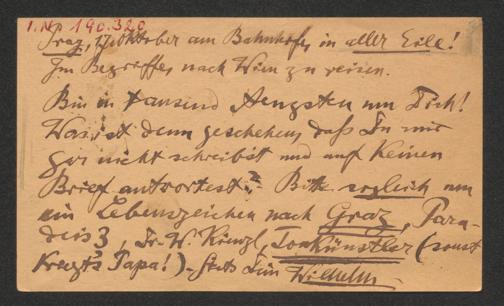 I.N. 190.320
Graz, 17. Oktober am Bahnhofe, in aller Eile!
Im Begriffe, nach Wien zu reisen.
Bin in tausend Aengsten um Dich!
Was ist denn geschehen, daß Du mir
gar nicht schreibst und auf keinen
Brief antwortest? Bitte sogleich um
ein Lebenszeichen nach Graz, Para-
deis 3, Dr. W. Kienzl, Tonkünstler (sonst
kriegt's Papa!) - Stets Dein Wilhelm